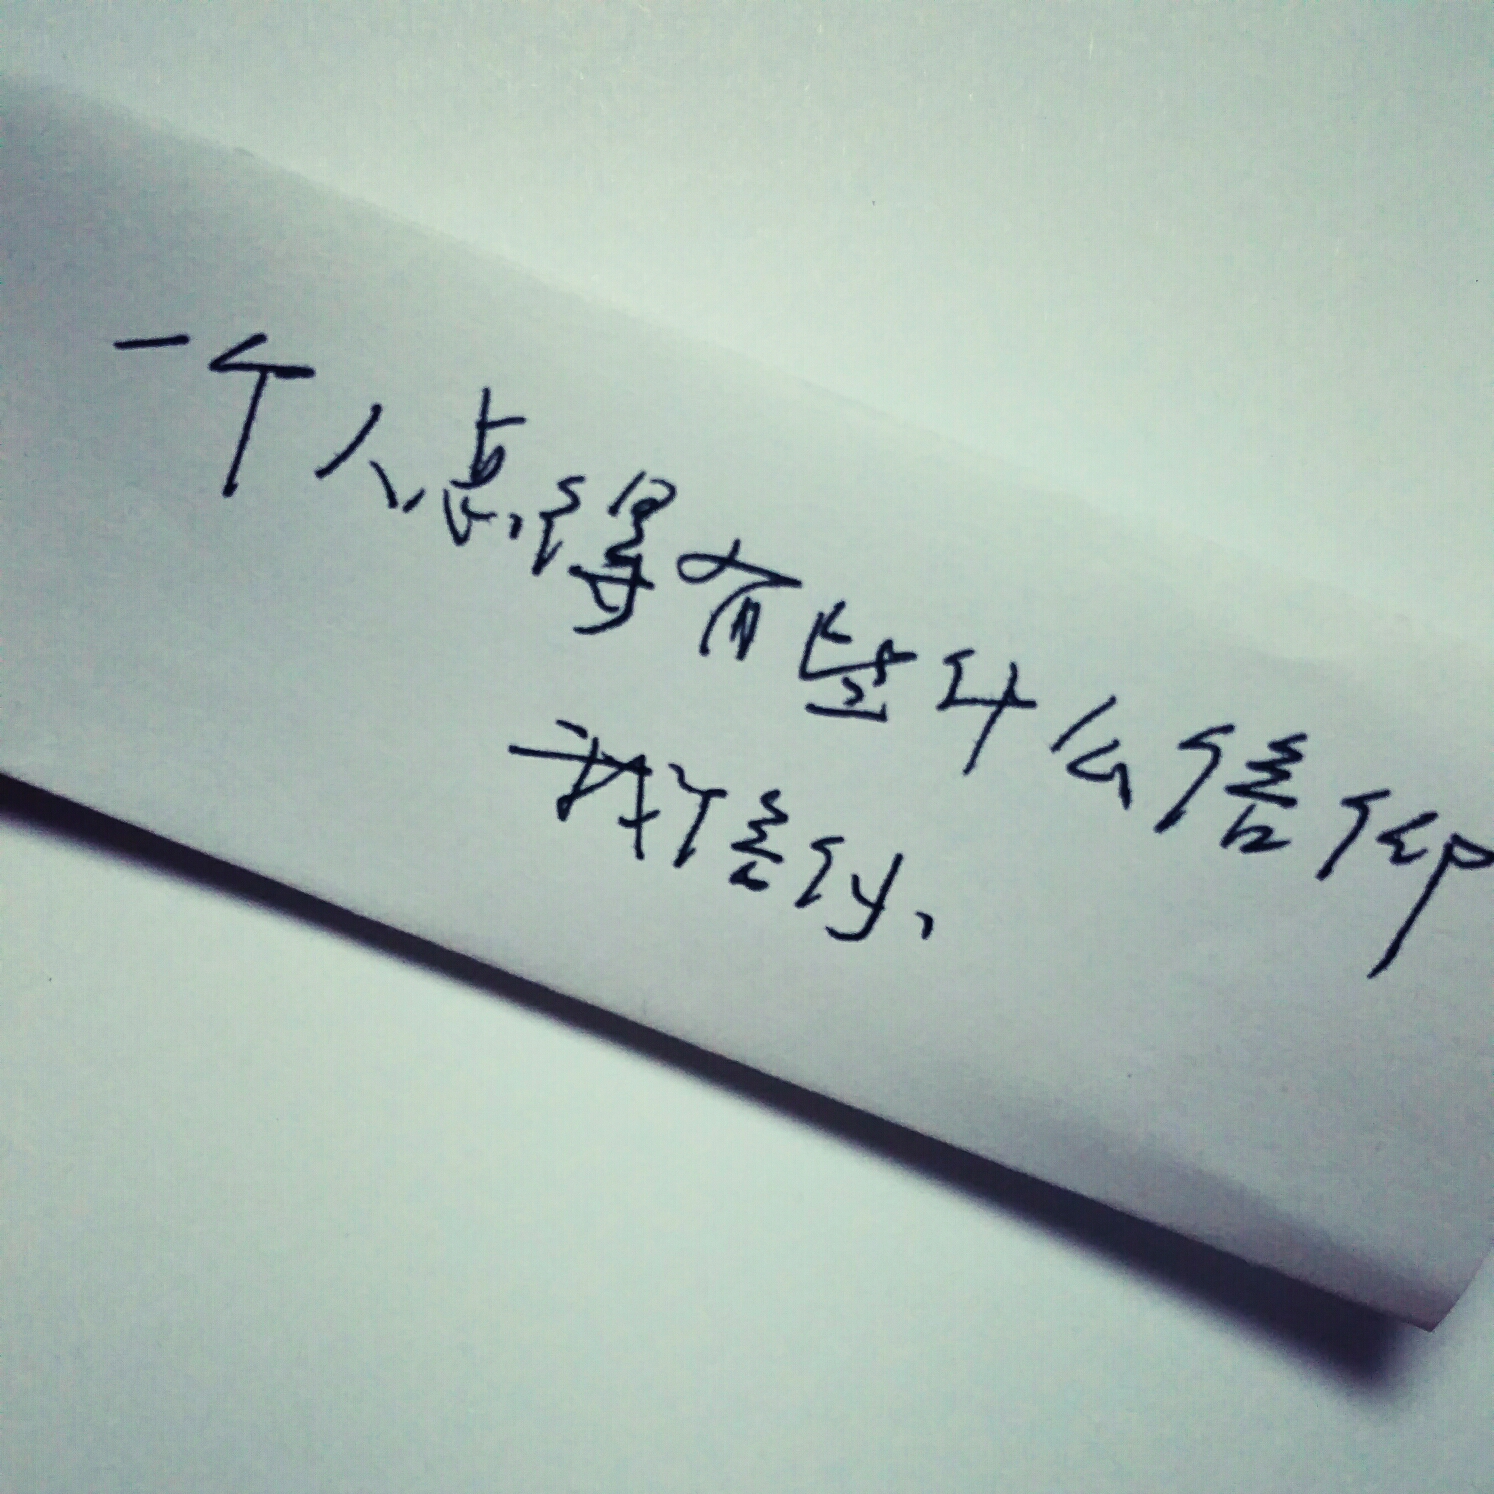 一个人总得有些什么信仰
我信你、